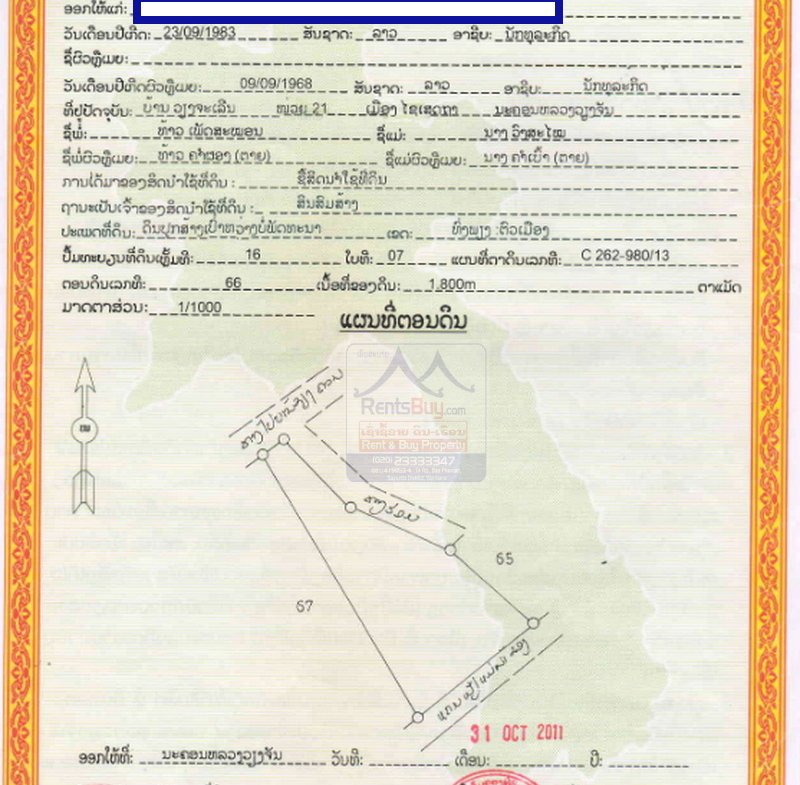 ອອກໃຫ້ແກ່:
ວັນເດືອນປີເກີດ: 23/09/1983 ສັນຊາດ: ລາວ ອາຊີບ: ນັກທຸລະກິດ
ຊື່ຜົວຫຼືເມຍ:
ວັນເດືອນປີເກີດຜົວຫຼືເມຍ: 09/09/1968 ສັນຊາດ: ລາວ ອາຊີບ: ນັກທຸລະກິດ
ທີ່ຢູ່ປັດຈຸບັນ: ບ້ານ ວຽງຈະເລີນ ໜ່ວຍ 21 ເມືອງ ໄຊເສດຖາ ນະຄອນຫລວງວຽງຈັນ
ຊື່ພໍ່: ທ້າວ ເພັດສະໝອນ ຊື່ແມ່: ນາງ ວິງສະໄໝ
ຊື່ພໍ່ຜົວຫຼືເມຍ: ທ້າວ ຄຳຜອງ (ຕາຍ) ຊື່ແມ່ຜົວຫຼືເມຍ: ນາງ ຄຳເຍົາ (ຕາຍ)
ການໄດ້ມາຂອງສິດນຳໃຊ້ທີ່ດິນ: ຊື້ສິດນຳໃຊ້ທີ່ດິນ
ຖານະເປັນເຈົ້າຂອງສິດນຳໃຊ້ທີ່ດິນ: ສິນສົມສ້າງ
ປະເພດທີ່ດິນ: ດິນປຸກສ້າງເປົ່າຫວ່າງບໍ່ພັດທະນາ ເຂດ: ທົ່ງພຽງ :ຕົວເມືອງ
ປຶ້ມທະບຽນທີ່ດິນເຫຼັ້ມທີ: 16 ໃບທີ: 07 ແຜນທີ່ຕາດິນເລກທີ: C 262-980/13
ຕອນດິນເລກທີ: 66 ເນື້ອທີ່ຂອງດິນ: 1,800m ຕາແມັດ
ມາດຕາສ່ວນ: 1/1000
ແຜນທີ່ຕອນດິນ
RentsBuy.com
ເຊົ່າຊື້ຂາຍ ດິນ-ເຮືອນ
Rent & Buy Property
(020) 23333347
ທາງຮ່ອມ
65
67
31 OCT 2011
ອອກໃຫ້ທີ່: ນະຄອນຫລວງວຽງຈັນ ວັນທີ: ເດືອນ: ປີ: